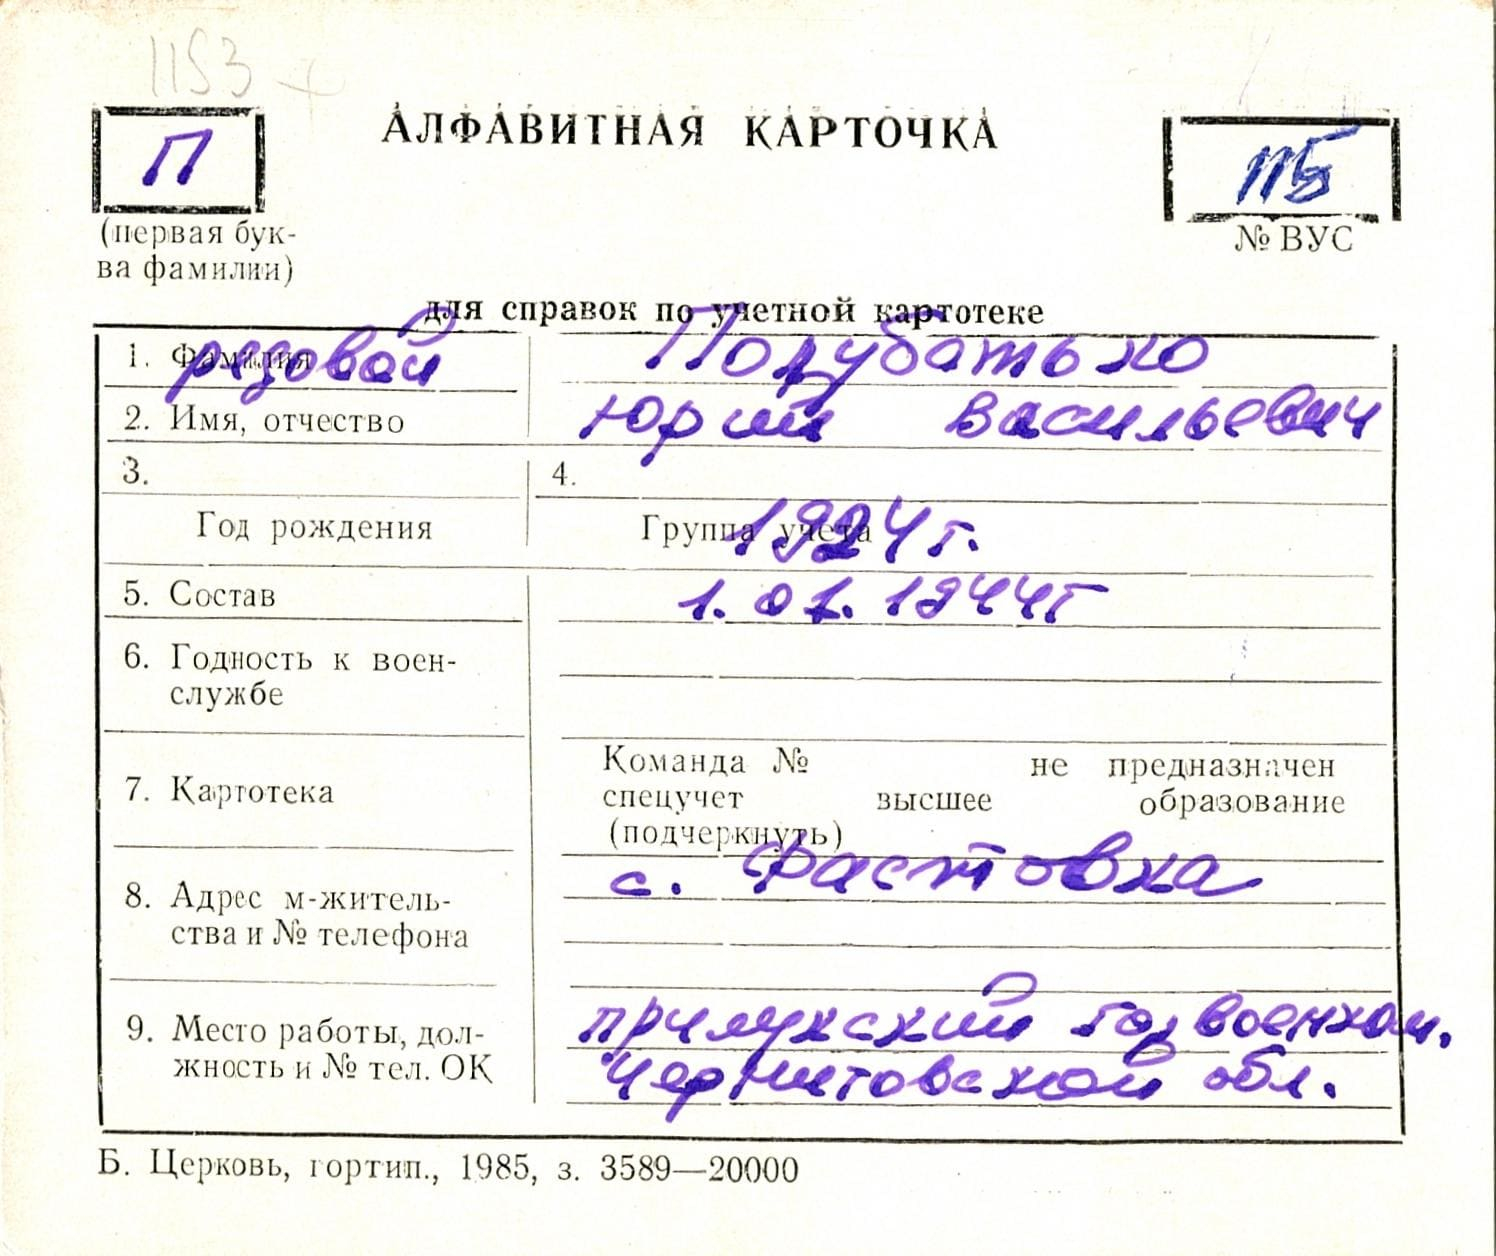 1153 +
АЛФАВИТНАЯ КАРТОЧКА
П
(первая бук-
ва фамилии)
№ ВУС
для справок по учетной картотеке
1. Фамилия рядовой Полубатько
2. Имя, отчество Юрий Васильевич
3. 4.
Год рождения Группа учета 1924 г.
5. Состав 1.01.1944г
6. Годность к воен-
службе
7. Картотека
Команда № не предназначен
спецучет высшее образование
(подчеркнуть)
8. Адрес м-житель-
ства и № телефона
с. Фастовка
9. Место работы, дол-
жность и № тел. ОК
прилукский горвоенком.
Черниговской обл.
Б. Церковь, гортип., 1985, з. 3589—20000